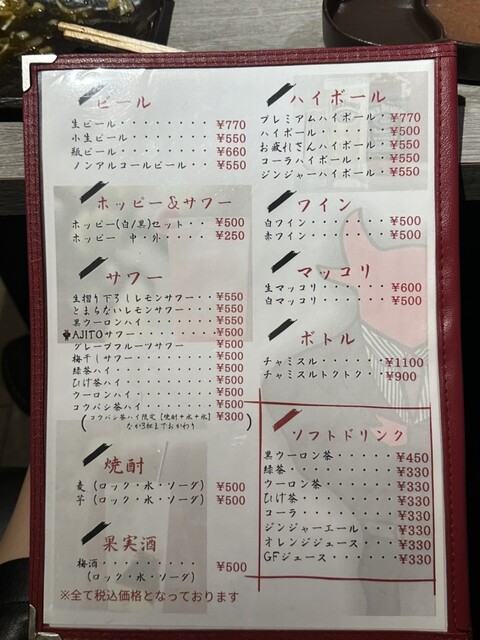 ビール
生ビール・・・・・・・・¥770
小生ビール・・・・・・・¥550
瓶ビール・・・・・・・・¥660
ノンアルコールビール・・¥550
ホッピー&サワー
ホッピー(白/黒)セット・・¥500
ホッピー 中・外・・・・¥250
サワー
生搾り下ろしレモンサワー・・¥550
とまらないレモンサワー・・¥550
黒ウーロンハイ・・・・・¥550
AJITOサワー・・・・・・¥500
グレープフルーツサワー ¥500
梅干しサワー・・・・・・¥500
緑茶ハイ・・・・・・・・¥500
ひげ茶ハイ・・・・・・・¥500
ウーロンハイ・・・・・・¥500
コウバシ茶ハイ・・・・・¥500
(コウバシ茶ハイ限定【焼酎+水+氷】¥300
なか3杯までおかわり)
焼酎
麦(ロック・水・ソーダ) ¥500
芋(ロック・水・ソーダ) ¥500
果実酒
梅酒・・・・・・・・・¥500
(ロック・水・ソーダ)
※全て税込価格となっております
ハイボール
プレミアムハイボール・¥770
ハイボール・・・・・・¥500
お疲れさんハイボール・¥550
コーラハイボール・・・¥550
ジンジャーハイボール・¥550
ワイン
白ワイン・・・・・・・¥500
赤ワイン・・・・・・・¥500
マッコリ
生マッコリ・・・・・・¥600
白マッコリ・・・・・・¥500
ボトル
チャミスル・・・・・・¥1100
チャミスルトクトク・・¥900
ソフトドリンク
黒ウーロン茶・・・・・・¥450
緑茶・・・・・・・・・・¥330
ウーロン茶・・・・・・・¥330
ひげ茶・・・・・・・・・¥330
コーラ・・・・・・・・・¥330
ジンジャーエール・・・・¥330
オレンジジュース・・・・¥330
GFジュース・・・・・・¥330